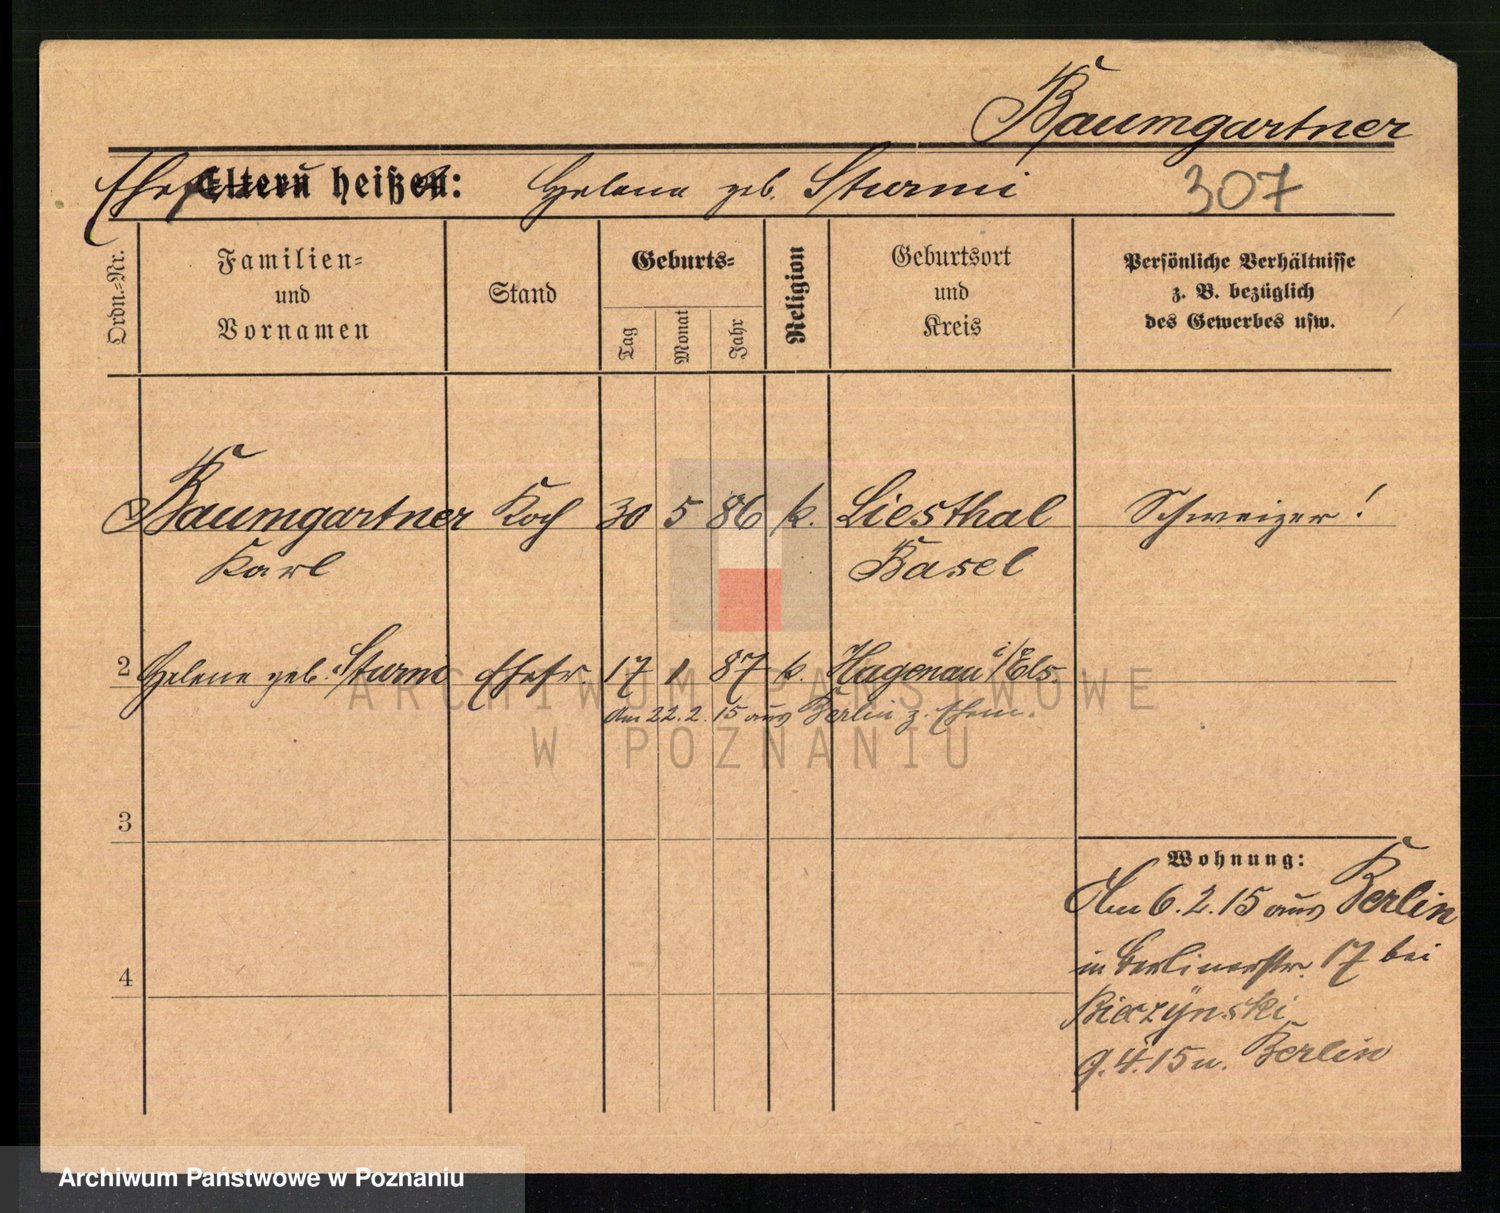 Baumgartner
Eltern heißen: Helene geb. Sturmi
307
Ordn.-Nr.
Familien-
und
Vornamen
Stand
Geburts-
Tag
Monat
Jahr
Religion
Geburtsort
und
Kreis
Persönliche Verhältnisse
z. B. bezüglich
des Gewerbes usw.
1 Baumgartner Koch 30 5 86 k. Liesthal Schweizer!
Karl Basel
2 Helene geb. Sturmi Ehefr. 17 1 87 k. Hagenau i/Els.
Am 22.2.15 aus Berlin z. Ehem.
ARCHIWUM PAŃSTWOWE
W POZNANIU
3
Wohnung:
Am 6.2.15 aus Berlin
in Berlinerstr. 17 bei
4
9.4.15 n. Berlin
Archiwum Państwowe w Poznaniu